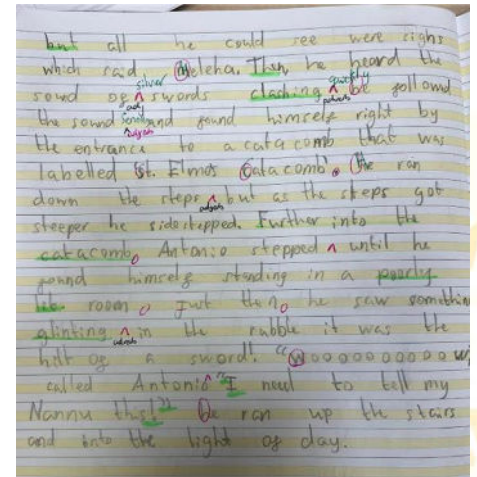 but all he could see were sighs
which said Meleha. Then he heard the
silver quickly
sound of swords clashing he followd
adj adverb
the sound and found himself right by
adverb
the entrance to a catacomb that was
labelled 'St. Elmos Catacomb'. He ran
down the steps, but as the steps got
adverb
steeper he sidestepped. Further into the
catacomb, Antonio stepped until he
found himself standing in a poorly
lit room, Just then, he saw somethin
glinting in the rubble it was the
adverb
hilt of a sword! "Wooooooooo w
called Antonio "I need to tell my
Nannu this!" He ran up the stairs
and into the light of day.